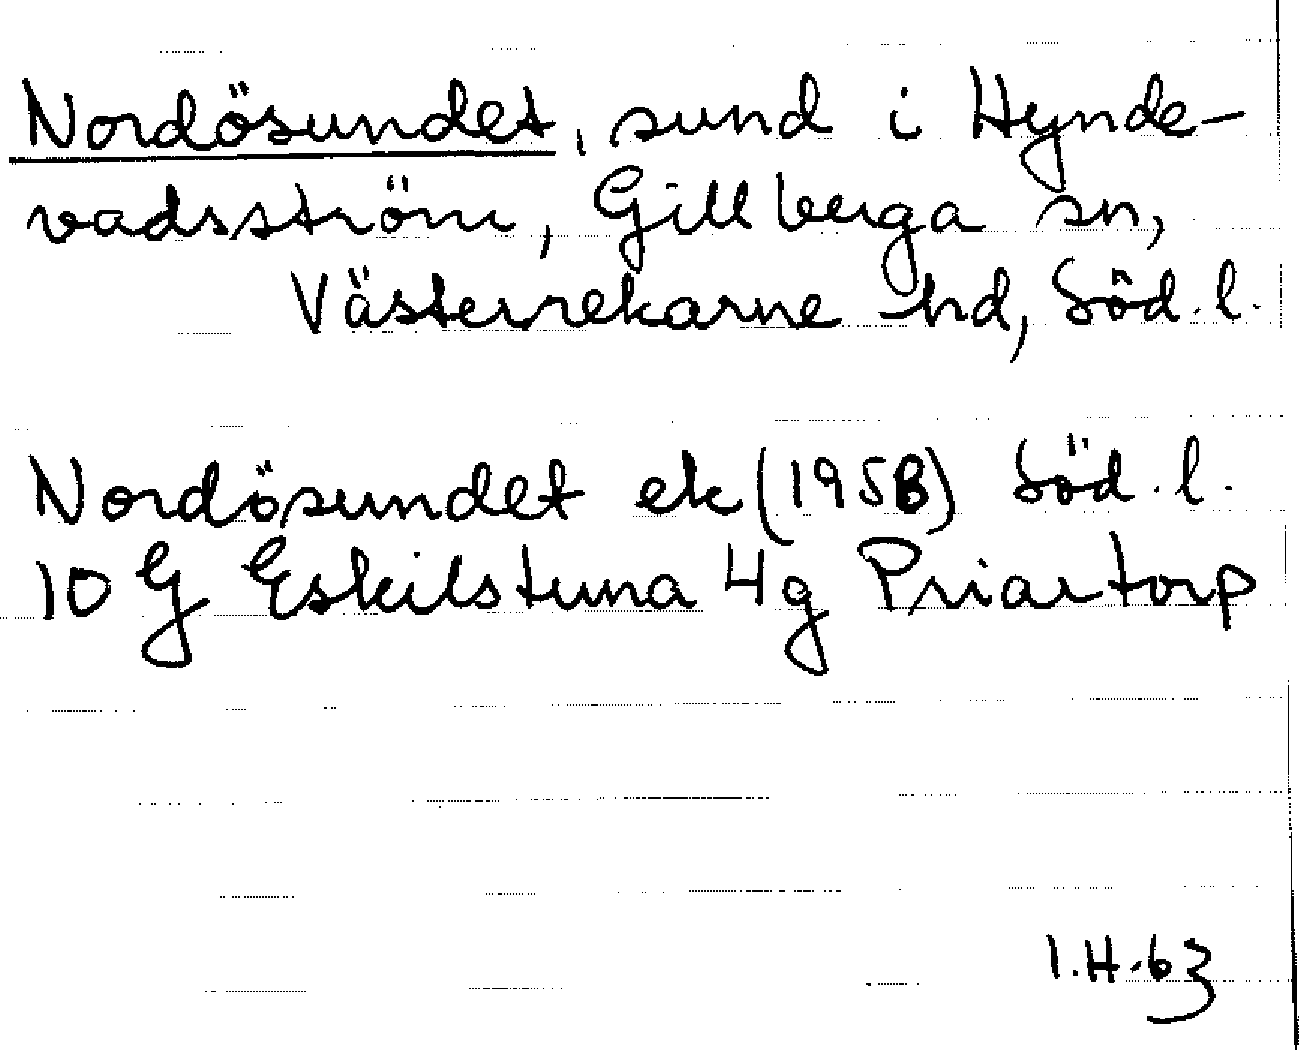 Nordösundet, sund i Hynde-
vadsström, Gillberga sn,
Västerrekarne hd, Söd. l.
Nordösundet ek (1958) Söd. l.
10 G Eskilstuna 4g Priartorp
I.H.63